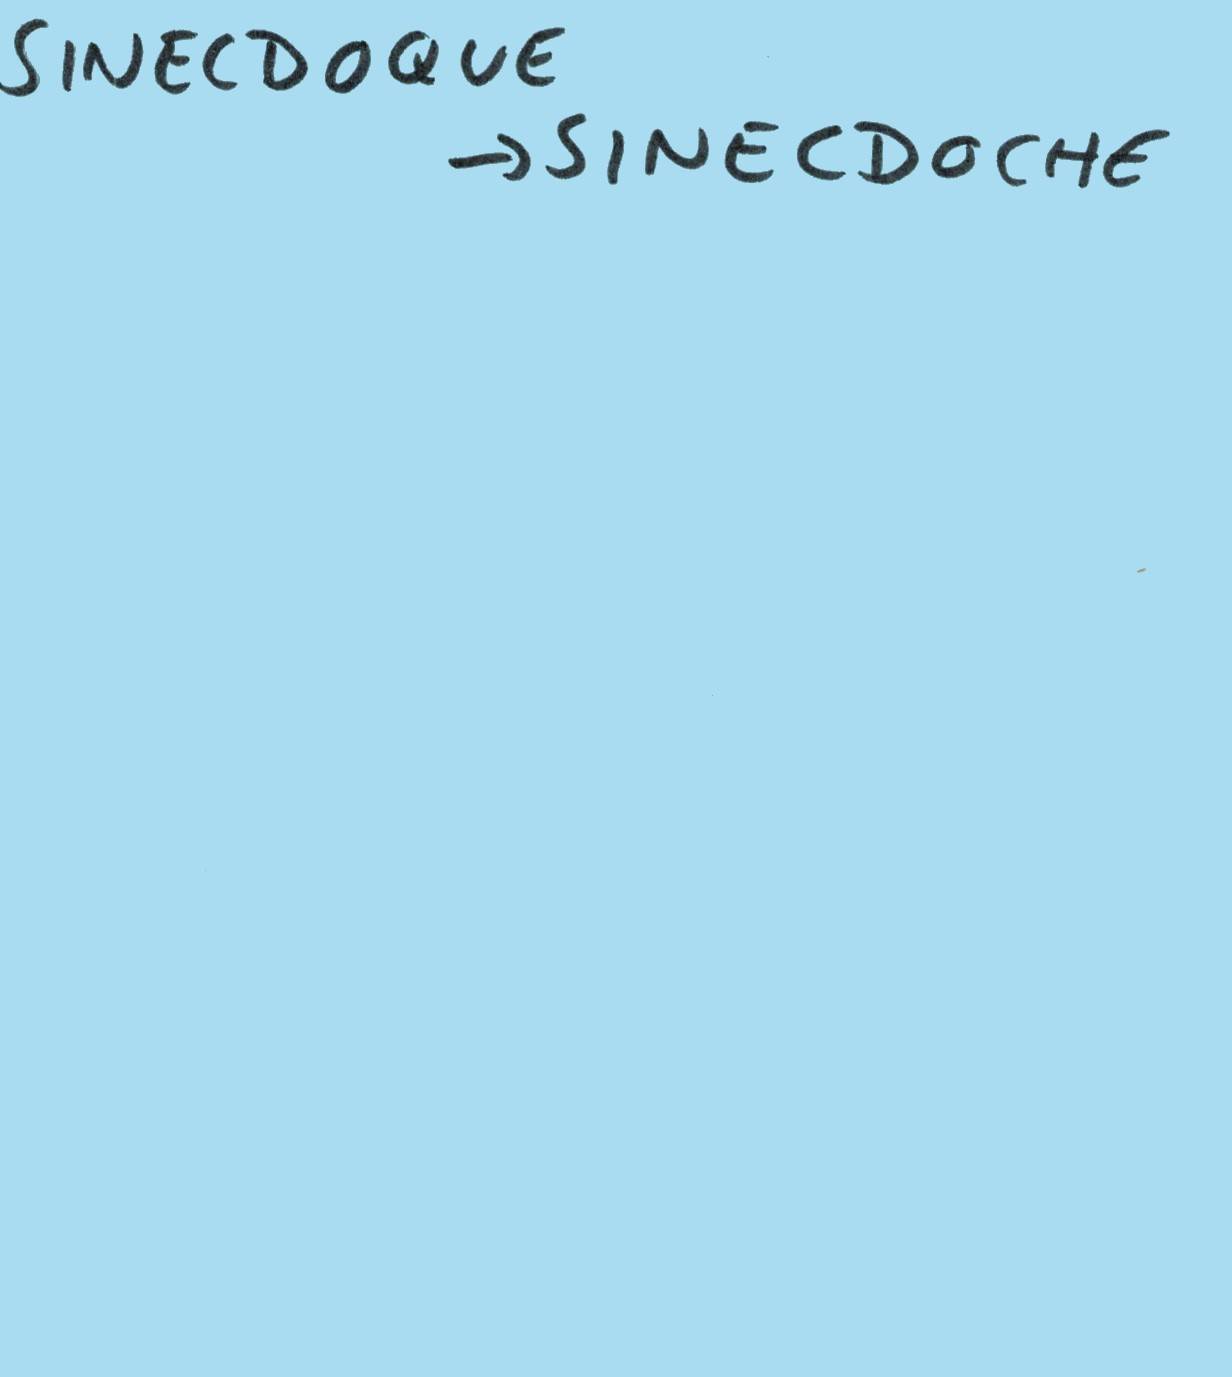 SINECDOQUE
→SINECDOCHE